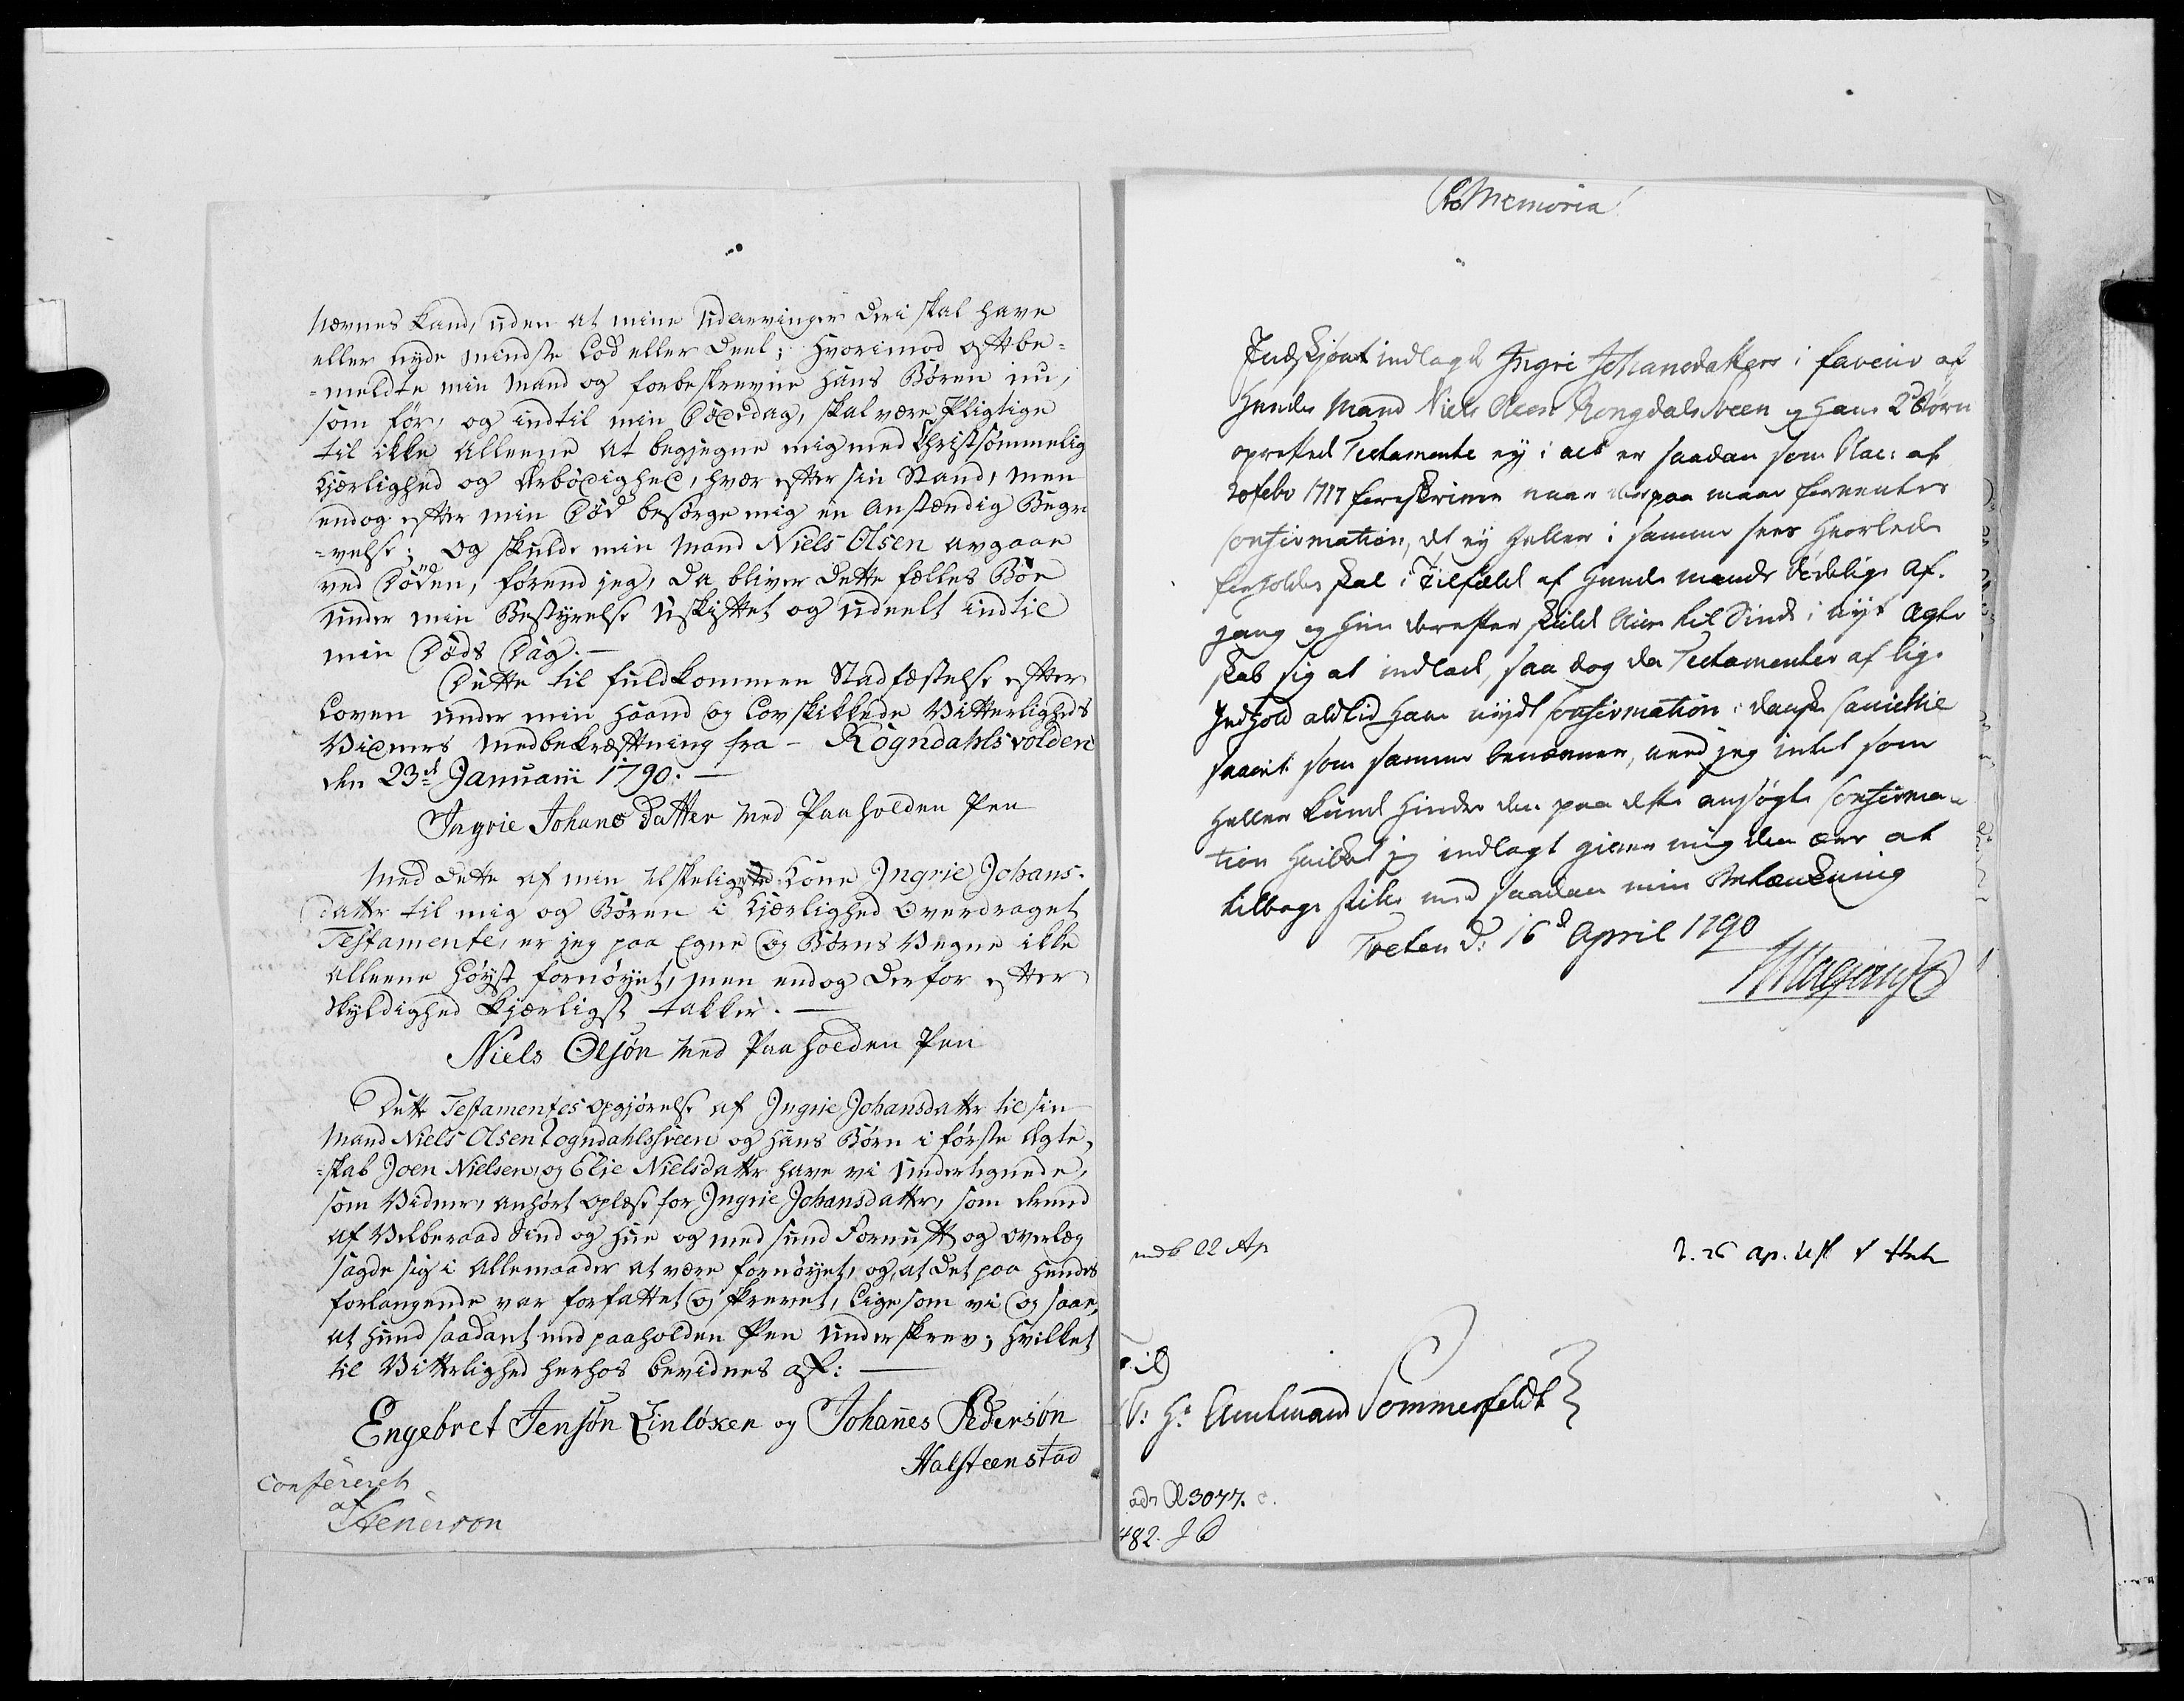 nævnes kand, uden at mine Udarvinger deri skal have
eller nyde mindste Lod eller Deel; hvorimod oftbe-
-meldte min Mand og forbeskrevne hans Børen nu,
som før, og indtil min Dødsdag, skal være pligtige
til ikke alleene at begjegne mig med Christsømmelig
Kjærlighed og Ærbødighed, hver efter sin Stand, men
endog efter min Død besørge mig en anstændig Begra
-velse; og skulde min Mand Niels Olsen avgaae
ved Døden, førend jeg, da bliver dette fælles Boe
under min Bestyrelse uskiftet og udeelt indtil
min Døds Dag.—
Dette til fuldkommen Stadfæstelse efter
Loven under min Haand og Lovskikkede Vitterligheds
Vidners medbekræftning fra - Rögndahlsvolden
den 23d Januarii 1790.—
Ingrie Johans Datter med Paaholden Pen
Med dette af min elskeligste Kone Ingrie Johans-
datter til mig og Børen i Kjærlighed overdraget
Testamente, er jeg paa Egne og Børns Vegne ikke
alleene høyst fornøyet, men endog derfor efter
Skyldighed kjærligst takker.—
Niels Olsøn med Paaholden Pen
Dette Testamentes opgjørelse af Ingrie Johansdatter til sin
Mand Niels Olsen Rogndahlssveen og hans Børn i første Ægte-
-skab Joen Nielsen, og Elie Nielsdatter have vi undertegnede,
som Vidner, anhørt oplæse for Ingrie Johansdatter, som derved
af Velberaad Sind og Hue og med sund Fornuft og overlæg
sagde sig i Allemaader at være fornøyet, og, at det paa hendes
forlangende var forfattet og skrevet, ligesom vi og saae,
at hund saadant med paaholden Pen underskrev; hvilket
til Vitterlighed herhos bevidnes af:—
Engebret Jensøn Einløxen og Johanes Pedersøn
Halsteenstad
Confererch
af
Stenerson
Pro Memoria!
Endskjønt indlagde Ingri Johansdatters i faveur af
Hendes Mand Niels Olsen Rongdalssveen og Hans 2de Børn
oprettede Testamente ey i alt er saadan som Plac: af
20 febr 1717 foreskriver naar derpaa maae forventes
Confirmation, det ey heller i samme sees Hvorledes
forholdes skal i Tilfælde af Hendes Mands dødelige Af-
gang og Hun derefter skulde blive til Sinds i nyt Ægte
skab sig at indlade, saa dog da Testamenter af lige
Indhold altid Have nydt Confirmation i danske Cancellie
saavit som samme benævner, veed jeg intet som
heller kunde Hindre den paa dette ansøgte Confirma-
tion Hvilket jeg indlagt giver mig den ære at
tilbage stille med saadan min Betænkning
Toten d: 16d April 1790
indk 22 Ap
Til
S: Hr Amtmand Sommerfeldt
adr R 3077.
482.